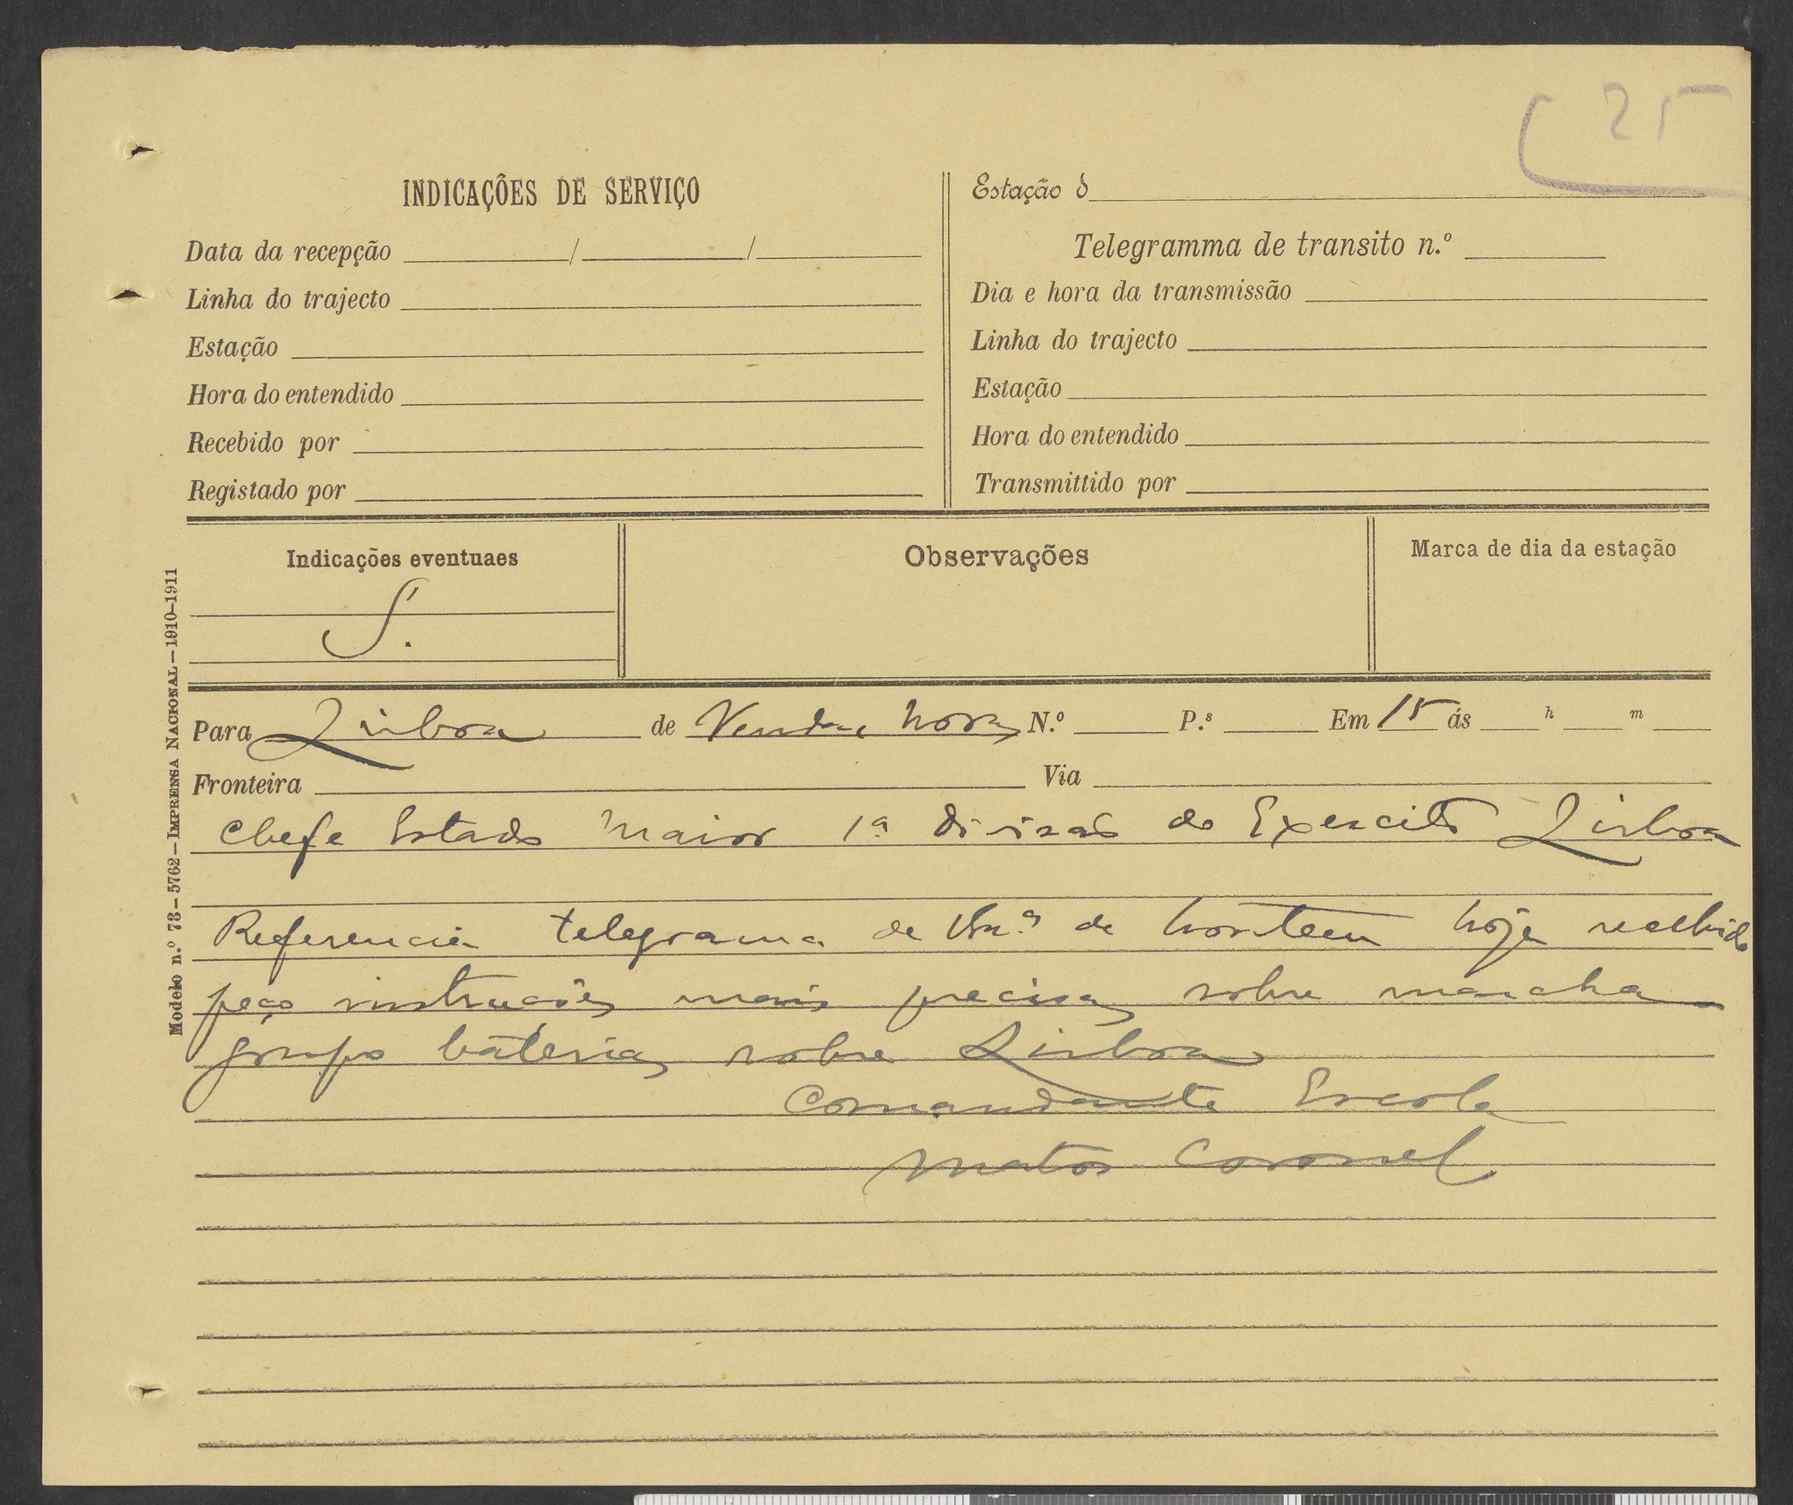 25
INDICAÇÕES DE SERVIÇO
Data da recepção / /
Linha do trajecto
Estação
Hora do entendido
Recebido por
Registado por
Estação d
Telegramma de transito n.º
Dia e hora da transmissão
Linha do trajecto
Estação
Hora do entendido
Transmittido por
Indicações eventuaes
S.
Observações
Marca de dia da estação
Modelo n.º 73 — 5762 — IMPRENSA NACIONAL — 1910-1911
Para Lisboa de Vendas Novas N.º P.s Em 15 ás h m
Fronteira Via
Chefe Estado Maior 1ª Divisão do Exercito Lisboa
Referencia telegrama de de hontem hoje recebido
peço instruções mais precisas sobre marcha
grupo baterias sobre Lisboa
Comandante Escola
Matos Coronel